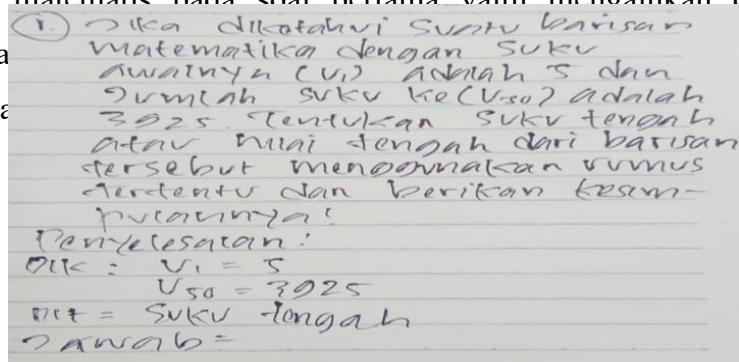 1. Jika diketahui suatu barisan
matematika dengan suku
awalnya (U1) adalah 5 dan
Jumlah suku ke (U50) adalah
3925. Tentukan suku tengah
atau nilai tengah dari barisan
tersebut menggunakan rumus
tertentu dan berikan kesim-
pulannya!
Penyelesaian :
Dik : U1 = 5
U50 = 3925
Dit = Suku tengah
Jawab =